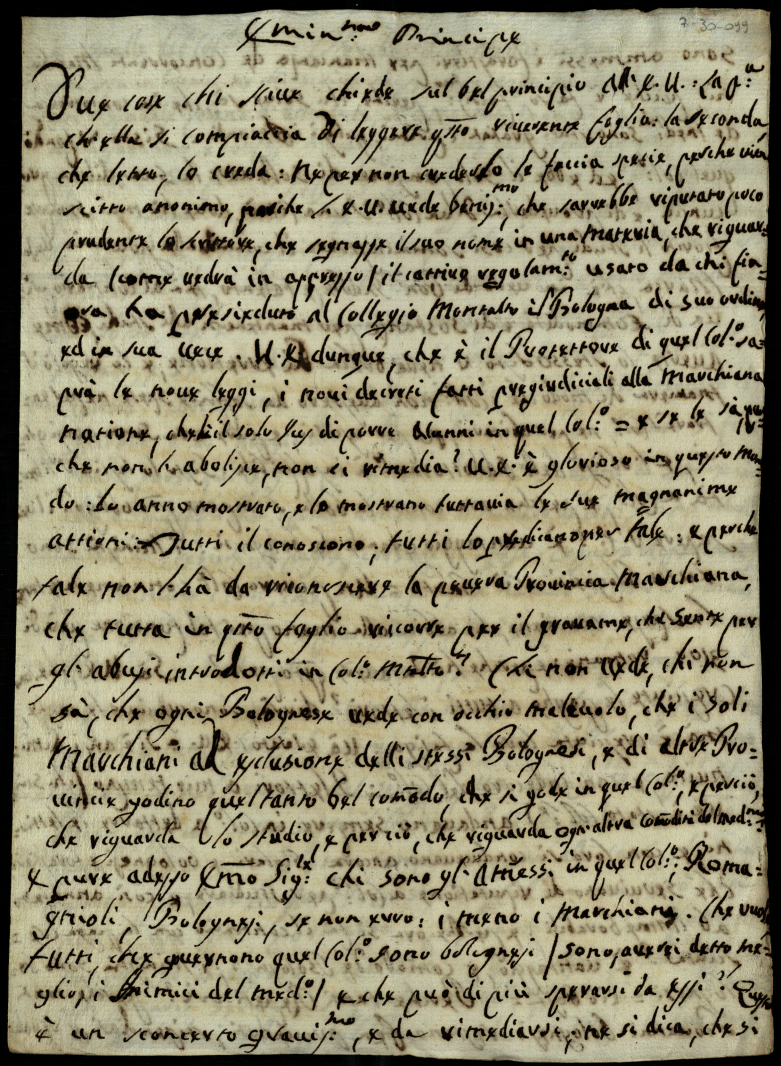 7-30-099
Emin.mo Principe
Due cose chi scive chiede sul bel principio all' E. V.: la p.a
ch' ella si compiaccia di leggere q̃sto riverente foglio: la seconda
che letto, lo creda: Ne per non crederlo le faccia specie, perche vien
scitto anonimo, poiche l' E. V. vede benis.mo, che sarrebbe riputato poco
prudente lo scrittore, che segnasse il suo nome in una materia, che riguar=
da /come vedrà in appresso/ il cattivo regolam.to usato da chi fin=
ora ha presieduto al Collegio Montalto di Bologna di suo ordine,
ed in sua vece. V. E. dunque, che è il Protettore di quel Col.o sa=
prà le nove leggi, i novi decreti fatti pregiudiciali alla Marchiana
natione, ch' hà il solo Jus di porre Alunni in quel Col.o = e se le sà,
che non l' abolisce, non ci rimedia? V. E. è glorioso in questo mon=
do: lo anno mostrato, e lo mostrano tuttavia le sue magnanime
attioni: Tutti il conoscono, tutti lo predicano per tale: e perche
tale non l' hà da riconoscere la povera Provincia Marchiana,
che tutta in q̃sto foglio ricorre per il gravame, che sente per
gl' abusi introdotti in Col.o Mñtto? Chi non vede, chi non
sà, che ogni Bolognese vede con occhio malevolo, che i soli
Marchiani ad esclusione delli stessi Bolognesi, e di altre Pro=
vincie godino quel tanto bel comodo, che si gode in quel Col.o, e perciò,
che riguarda lo studio, e perciò, che riguarda ogn' altra comodità del med.mo
e pure adesso Em̃o Sig.re chi sono gl' Am̃essi in quel Col.o; Roma=
gnioli, Bolognesi, se non erro: i meno i Marchiani. Che vuol
tutti, che governono quel Col.o sono bolognesi /sono, averei detto me=
glio, i Nimici del med.o/ e che può di più sperarsi da essi? Questo
è un sconcerto gravis.mo, e da rimediarsi, ne si dica, che si